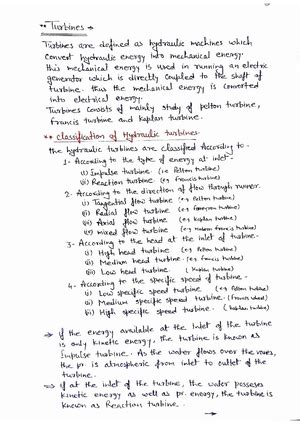 ** Turbines →
Turbines are defined as hydraulic machines which
convert hydraulic energy into mechanical energy.
this mechanical energy is used in running an electric
generator which is directly coupled to the shaft of
turbine. thus the mechanical energy is converted
into electrical energy.
Turbines consists of mainly study of pelton turbine,
francis turbine and kaplan turbine.
** classification of Hydraulic turbines
the hydraulic turbines are classified According to -
1- According to the type of energy at inlet -
(i) Impulse turbine (i.e Pelton turbine)
(ii) Reaction turbine (e.g francis turbine)
2- According to the direction of flow through runner.
(i) Tangential flow turbine (e.g Pelton turbine)
(ii) Radial flow turbine (e.g turbine)
(iii) Axial flow turbine (e.g Kaplan turbine)
(iv) mixed flow turbine (e.g Modern francis turbine)
3- According to the head at the inlet of turbine -
(i) High head turbine (e.g Pelton turbine)
(ii) Medium head turbine (e.g francis turbine)
(iii) Low head turbine (Kaplan turbine)
4- According to the specific speed of turbine -
(i) Low specific speed turbine (e.g Pelton turbine)
(ii) Medium specific speed turbine (francis)
(iii) High specific speed turbine (kaplan turbine)
⇒ if the energy available at the inlet of the turbine
is only kinetic energy, the turbine is known as
Impulse turbine. As the water flows over the vanes,
the pr. is atmospheric from inlet to outlet of the
turbine.
⇒ if at the inlet of the turbine, the water posseses
kinetic energy as well as pr. energy, the turbine is
known as Reaction turbine.
→